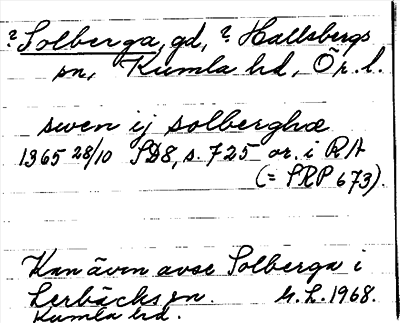 ? Solberga, gd, ? Hallsbergs
sn, Kumla hd, Ör. l.
swen ij solberghæ
1365 28/10 SD8, s. 725 or. i RA
(= SRP 673).
Kan även avse Solberga i
Lerbäcks sn. M.L. 1968.
Kumla hd.